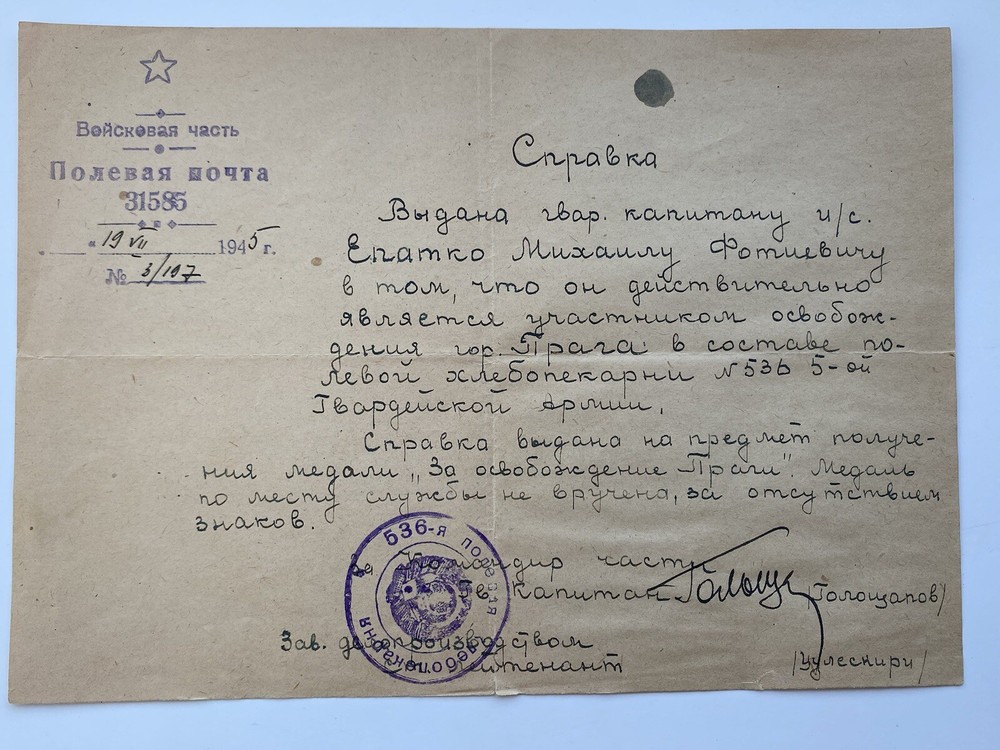 Войсковая часть
Полевая почта
31585
"19 VII 1945 г.
№ 3/197
Справка
Выдана гвар. капитану и/с.
Епатко Михаилу Фотиевичу
в том, что он действительно
является участником освобож-
дения гор. Прага в составе по-
левой хлебопекарни №536 5-ой
Гвардейской Армии.
Справка выдана на предмет получе-
ния медали „За освобождение Праги". Медаль
по месту службы не вручена, за отсутствием
знаков.
Командир части
Гв. капитан (Голощапов)
Зав. делопроизводством
лейтенант
536-я полевая хлебопекарня